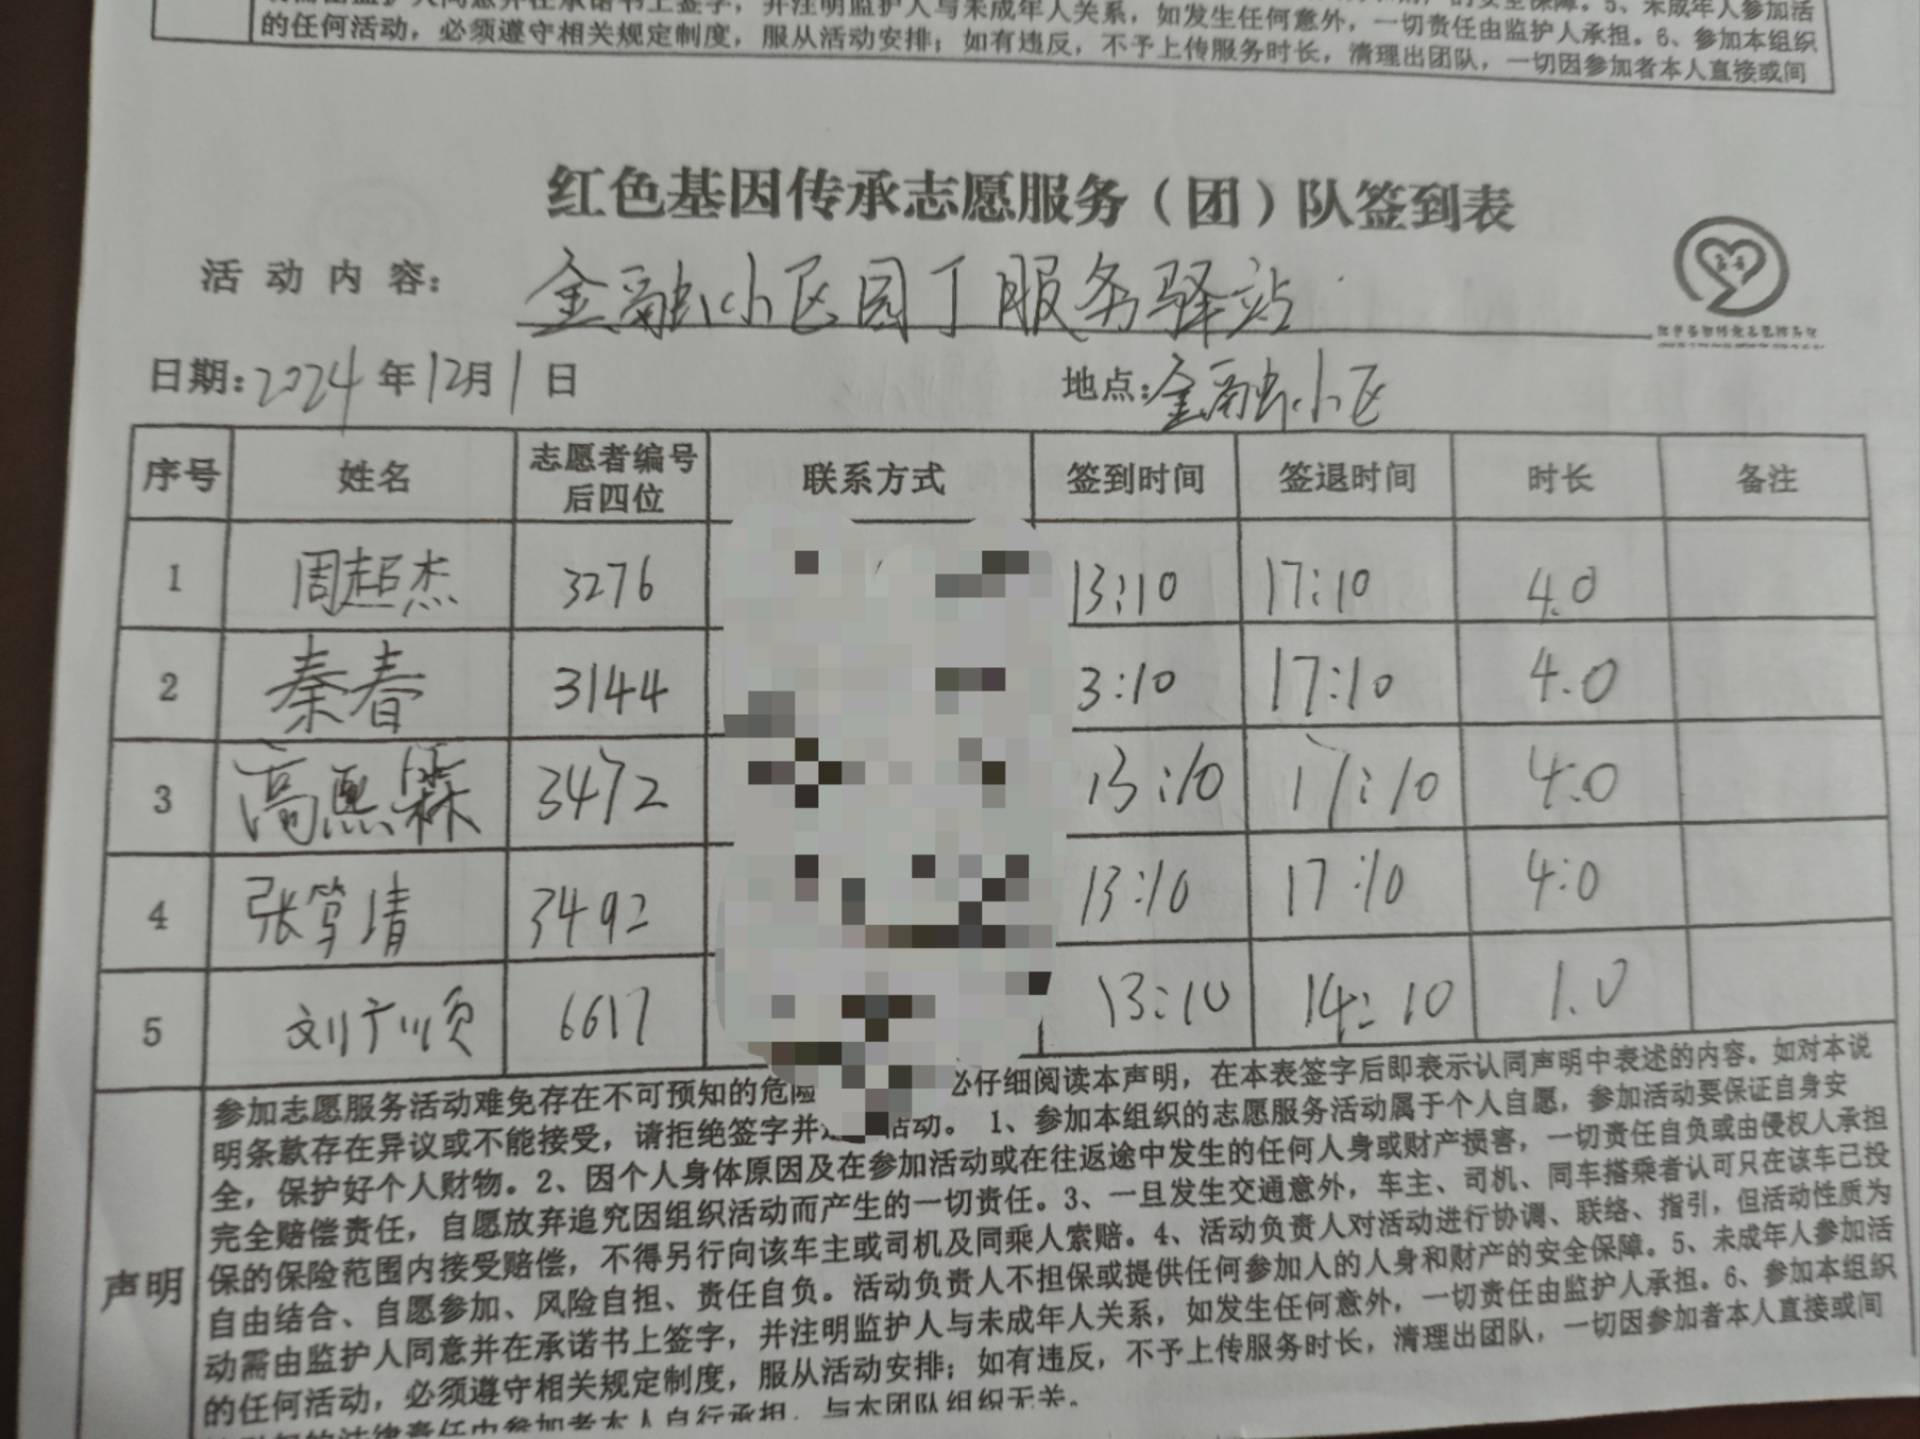 的任何活动，必须遵守相关规定制度，服从活动安排；如有违反，不予上传服务时长，清理出团队，一切因参加者本人直接或间
红色基因传承志愿服务（团）队签到表
活动内容：金融小区园丁服务驿站
日期：2024年12月1日 地点：金融小区
序号 姓名 志愿者编号后四位 联系方式 签到时间 签退时间 时长 备注
1 周超杰 3276 13:10 17:10 4.0
2 秦春 3144 3:10 17:10 4.0
3 高熙霖 3472 13:10 17:10 4.0
4 张笃清 3492 13:10 17:10 4:0
5 刘广顺 6617 13:10 14:10 1.0
声明
参加志愿服务活动难免存在不可预知的危险 必仔细阅读本声明，在本表签字后即表示认同声明中表述的内容。如对本说
明条款存在异议或不能接受，请拒绝签字并 活动。 1、参加本组织的志愿服务活动属于个人自愿，参加活动要保证自身安
全，保护好个人财物。2、因个人身体原因及在参加活动或在往返途中发生的任何人身或财产损害，一切责任自负或由侵权人承担
完全赔偿责任，自愿放弃追究因组织活动而产生的一切责任。3、一旦发生交通意外，车主、司机、同车搭乘者认可只在该车已投
保的保险范围内接受赔偿，不得另行向该车主或司机及同乘人索赔。4、活动负责人对活动进行协调、联络、指引，但活动性质为
自由结合、自愿参加、风险自担、责任自负。活动负责人不担保或提供任何参加人的人身和财产的安全保障。5、未成年人参加活
动需由监护人同意并在承诺书上签字，并注明监护人与未成年人关系，如发生任何意外，一切责任由监护人承担。6、参加本组织
的任何活动，必须遵守相关规定制度，服从活动安排；如有违反，不予上传服务时长，清理出团队，一切因参加者本人直接或间
法律责任由参加者本人自行承担，与本团队组织无关。